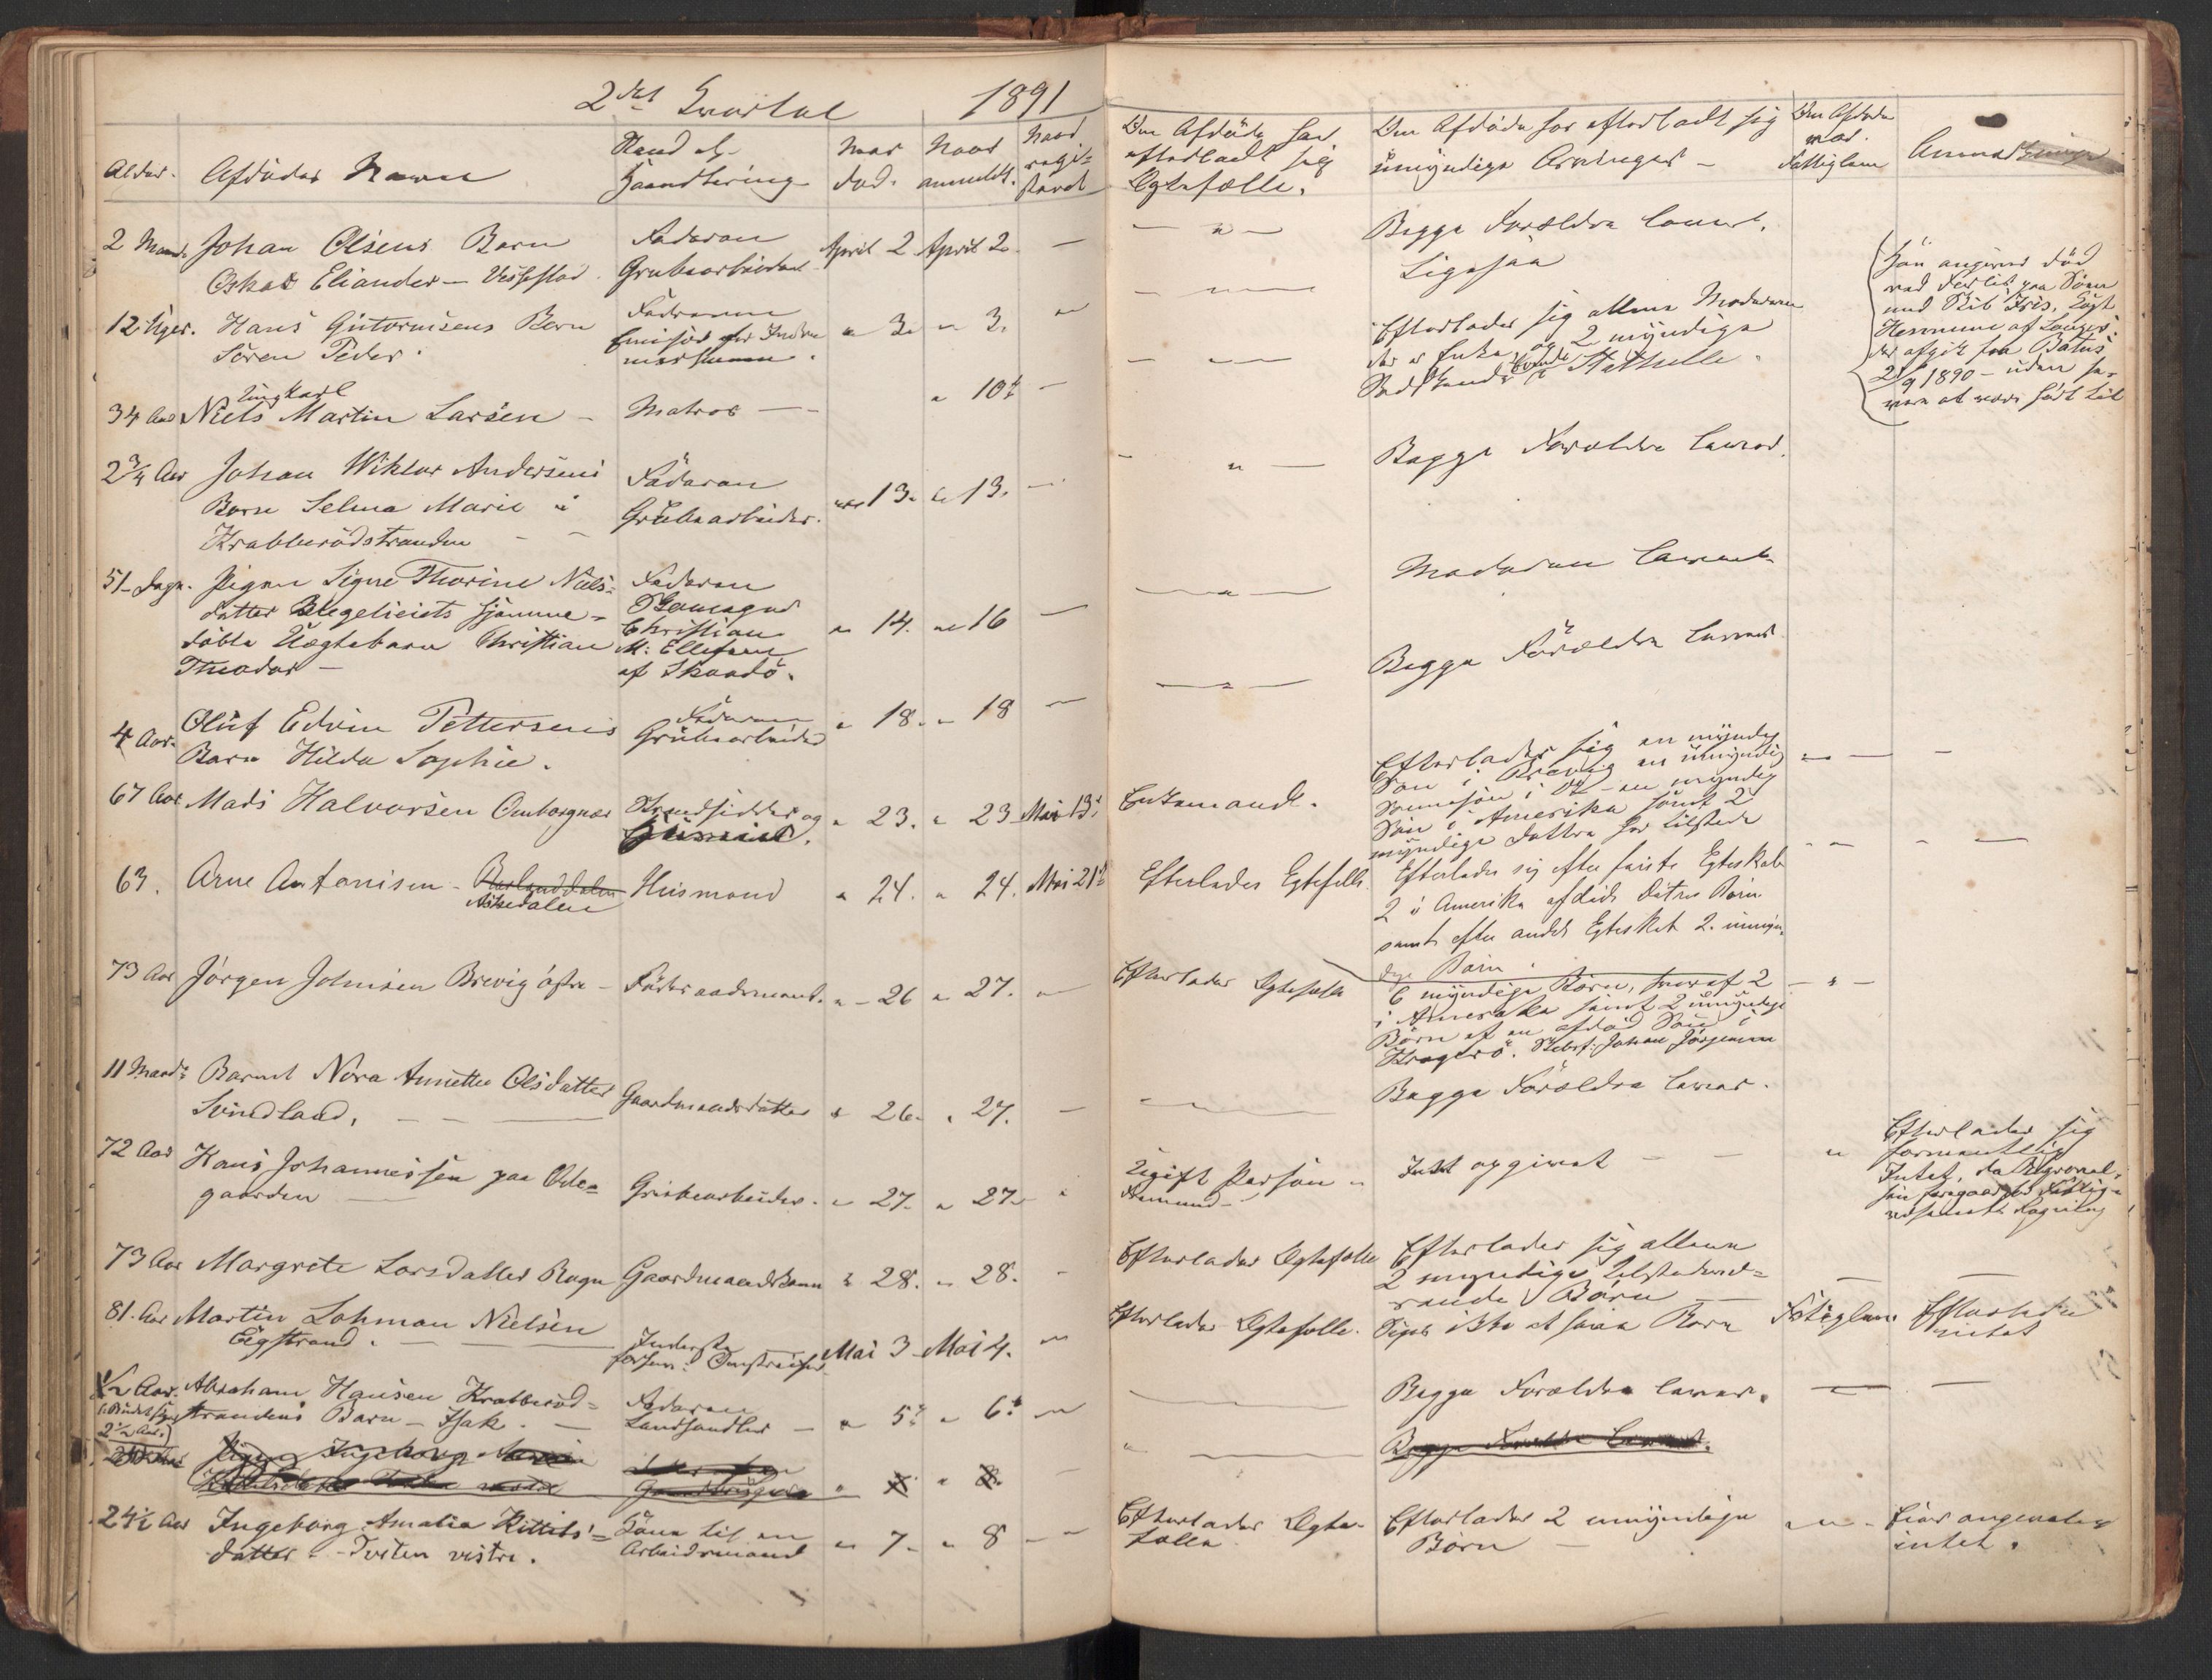 2det Qvartal 1891
Alder.
Afdødes Navn
Stand og
Haandtering
Naar
død.
Naar
anmeldt.
Naar
regi=
streret
Den Afdøde har
efterladt sig
Egtefælle.
Den Afdøde har efterladt sig
umyndige Arvinger –
Den Afdøde
var
Fattiglem
Anmærkninger
2 Maan. Johan Olsens Barn
Oskar Eliander –
Faderen
Grubearbeider
April 2 April 2. –
Begge Forældre lever.
12 Uger. Hans Gutormsens Barn
Søren Peder.
Faderen
" 3. " 3. "
Ligesaa
Ungkarl
34 Aar Niels Martin Larsen –
Matros –
" 10de –
Efterlader sig allene Moderen
der er Enke og 2 myndige
i Stathelle.
Han angives død
ved Forlis paa Søen
med Skib Iris,
der afgik fra
2/9 1890 – uden
2 3/4 Aar Johan Wiktor Andersens
Barn Selma Marie i
Krabberødstranden
Faderen
Grubearbeider.
" 13. " 13. –
Begge Forældre lever.
51 Dage. Pigen Signe Thorine Niels=
datter hjemme=
døbte Uægtebarn Christian
Theodor –
Faderen
Christian
M. Ellefsen
af Skaadø.
" 14. " 16 –
Moderen lever
4 Aar. Oluf Edvin Pettersens
Barn Hilda Sophie.
Faderen
Grubearbeider
" 18. " 18 –
Begge Forældre lever
67 Aar Mads Halvorsen Omborgnæs
Strandsidder og
" 23. " 23 Mai 13.
Enkemand.
Efterlader sig en myndig
Søn i Brevig en umyndig
Sønnesøn i Do – en myndig
Søn i Amerika samt 2
myndige Døttre her tilstede
63. Arne Antonisen –
Aasedalen
Husmand
" 24. " 24. Mai 21de
Efterlader Egtefelle.
Efterlader sig efter første Egteskab
2 i Amerika afdøde Datres Børn
samt efter andet Egteskab 2. umyn.
dige Børn.
73 Aar Jørgen Johnsen Brevig østre –
Føderaadsmand.
" – 26 " 27. "
Efterlader Egtefælle
6 myndige Børn, hvoraf 2
i Amerika samt 2 umyndige
Børn af en afdød Søn i
Kragerø. Johan Jørgensen
11 Maan. Barnet Nora Annette Olsdatter
Svindland.
Gaardmandsdatter
" 26. " 27. –
Begge Forældre lever.
72 Aar Hans Johannessen paa Øde=
gaarden –
Grubearbeider.
" 27. " 27. "
Ugift Person –
Intet opgivet –
Efterlader sig
formentlig
Intet,
73 Aar Margrete Larsdatter Rogn
Gaardmandskone
" 28. " 28. –
Efterlader Egtefælle
Efterlader sig allene
2 myndige tilstedevæ=
rende Børn –
81. Aar Martin Lohman Nielsen
Eigstrand.
Inderst
Mai 3 Mai 4. "
Efterlader Egtefælle.
Siges ikke at have Børn
Fattiglem.
Efterlader
intet
1/2 Aar. Abraham Hansen Krabberød=
strandens Barn – Isak. –
2 1/2 Aar.
Faderen
Landhandler –
" 5te " 6te "
Begge Forældre lever.
Pigen Ingeborg
Begge Forældre lever.
24 1/2 Aar Ingeborg Amalia Kittils=
datter – Tveten vestre.
Kone til en
Arbeidsmand
" 7 – " 8 –
Efterlader Egte=
fælle
Efterlader 2 umyndige
Børn –
Eier angivelig
intet.